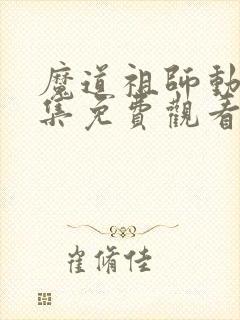 魔道祖師動
集免費觀看
崔脩佳